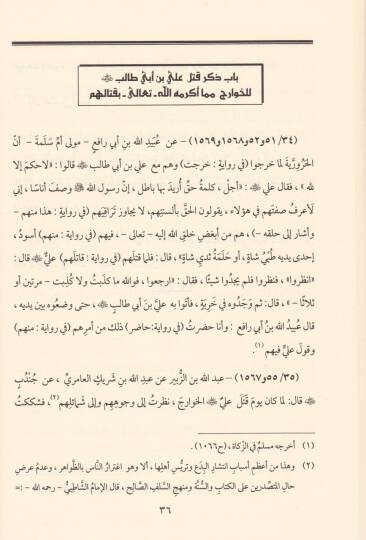 باب ذكر قتل علي بن أبي طالب ﷺ
للخوارج مما أكرمه اللّه - تعالى - بقتالهم
(٥١/٣٤و٥٢و١٥٦٨و١٥٦٩) - عن عُبيد الله بن أبي رافع - مولى أمِّ سَلَمةَ - أنّ
الحَرُوريَّة لما خرجوا (في رواية : خرجت) وهم مع علي بن أبي طالب ﷺ قالوا : «لاحكمَ إلا
لله» ، فقال علي ﷺ : «أجل ، كلمةُ حقٍّ أُريدَ بها باطل ، إنّ رسول الله ﷺ وصفَ أناسًا ، إني
لأعرفُ صفتَهم في هؤلاء ، يقولون الحقَّ بألسنتِهم، لا يجاوز تَرَاقِيَهم (في رواية : هذا منهم -
وأشار إلى حلقه -) ، هم من أبغضِ خلقِ الله إليه - تعالى - ، فيهم (في رواية : منهم) أسودُ ،
إحدى يديه طُبْيُ شاةٍ ، أو حَلَمَةُ ثديِ شاةٍ» ، قال : فلما قتلَهم (في رواية : قاتلَهم) عليٌّ ﷺ قال :
«انظروا» ، فنظروا فلم يجدُوا شيئًا ، فقال : «ارجعوا ، فوالله ما كذَبتُ ولا كُذِبت - مرتين أو
ثلاثًا -» ، قال : ثم وَجَدُوه في خَرِبَةٍ ، فأتَوا به عليَّ بنَ أبي طالبٍ ﷺ ، حتى وضعُوه بين يديه ،
قال عُبيدُ الله بنُ أبي رافع : وأنا حضرتُ (في رواية:حاضر) ذلك من أمرِهم (في رواية : منهم)
وقولَ عليٍّ فيهم (١).
(٥٥/٣٥و١٥٦٧) - عبد الله بن الزُّبير عن عبدِ الله بنِ شَريكٍ العامريِّ ، عن جُنْدُبٍ
ﷺ قال: لما كان يومَ قَتَلَ عليٌّ ﷺ الخوارجَ ، نظرتُ إلى وجوهِهم وإلى شَمائلِهم(٢)، فشككتُ
(١) أخرجه مسلمٌ في الزَّكاة ، (ح١٠٦٦) .
(٢) وهذا من أعظمِ أسبابِ انتشارِ البِدَع وتريُّسِ أهلِها ، ألا وهو اغترارُ النَّاسِ بالظَّواهر ، وعدمُ عرضِ
حالِ المتصْدّرين على الكتابِ والسُّنَّة ومنهجِ السَّلفِ الصَّالح ، قال الإمامُ الشَّاطبيُّ - رحمه الله - :=
٣٦